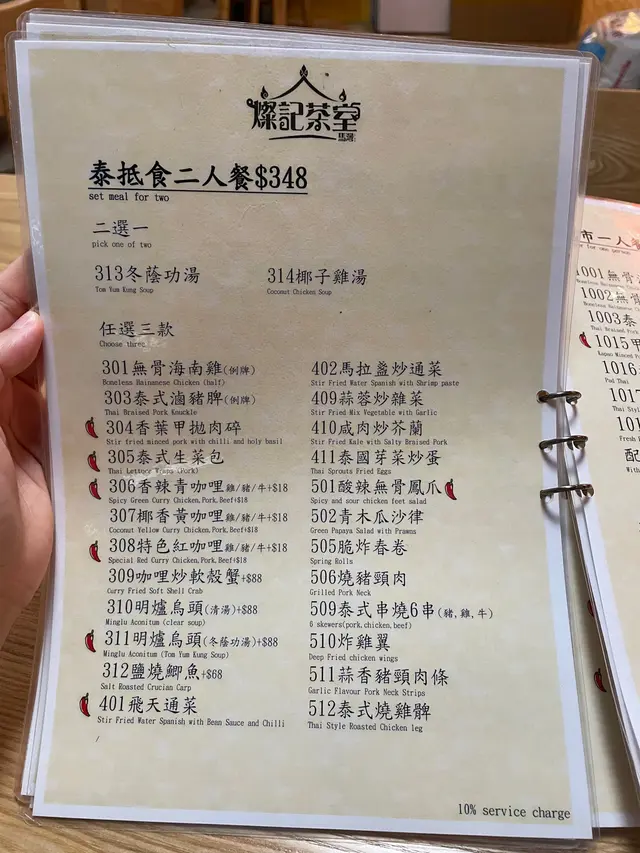 燦記茶室
泰抵食二人餐$348
set meal for two
二選一
pick one of two
313冬蔭功湯
Tom Yum Kung Soup
314椰子雞湯
Coconut Chicken Soup
任選三款
Choose three
301無骨海南雞(例牌)
Boneless Hainanese Chicken (half)
303泰式滷豬脾(例牌)
Thai Braised Pork Knuckle
304香葉甲拋肉碎
Stir fried minced pork with chilli and holy basil
305泰式生菜包
Thai Lettuce Wraps (Pork)
306香辣青咖哩雞/豬/牛+$18
Spicy Green Curry Chicken,Pork,Beef+$18
307椰香黃咖哩雞/豬/牛+$18
Coconut Yellow Curry Chicken,Pork,Beef+$18
308特色紅咖哩雞/豬/牛+$18
Special Red Curry Chicken,Pork,Beef+$18
309咖哩炒軟殼蟹+$88
Curry Fried Soft Shell Crab
310明爐烏頭(清湯)+$88
Minglu Aconitum (clear soup)
311明爐烏頭(冬蔭功湯)+$88
Minglu Aconitum (Tom Yum Kung Soup)
312鹽燒鯽魚+$68
Salt Roasted Crucian Carp
401飛天通菜
Stir Fried Water Spanish with Bean Sauce and Chilli
402馬拉盞炒通菜
Stir Fried Water Spanish with Shrimp paste
409蒜蓉炒雜菜
Stir Fried Mix Vegetable with Garlic
410咸肉炒芥蘭
Stir Fried Kale with Salty Braised Pork
411泰國芽菜炒蛋
Thai Sprouts Fried Eggs
501酸辣無骨鳳爪
Spicy and sour chicken feet salad
502青木瓜沙律
Green Papaya Salad with Prawns
505脆炸春卷
Spring Rolls
506燒豬頸肉
Grilled Pork Neck
509泰式串燒6串(豬,雞,牛)
6 skewers(pork,chicken,beef)
510炸雞翼
Deep Fried chicken wings
511蒜香豬頸肉條
Garlic Flavour Pork Neck Strips
512泰式燒雞髀
Thai Style Roasted Chicken leg
10% service charge
市一人
for one person
1001無骨
Boneless Hainanese
1002無骨
Boneless
1003泰
Thai Braised Pork
1015甲
Kapao Minced
1016
Pad Thai
1017
配